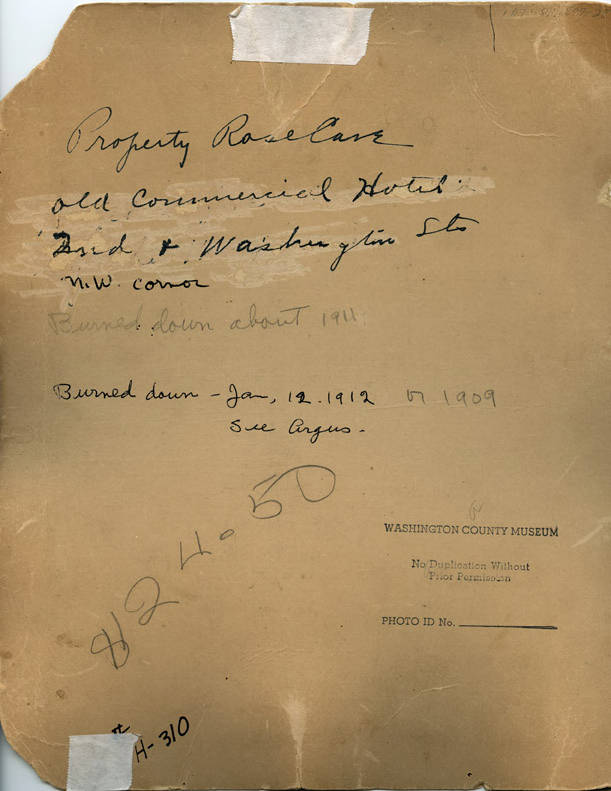 Property Rose Cave
old Commercial Hotel
2nd & Washington Sts
N.W. cornor
Burned down about 1911
Burned down - Jan, 12. 1912 or 1909
See Argus.
824-50
WASHINGTON COUNTY MUSEUM
No Duplication Without
Prior Permission
PHOTO ID No.
H-310